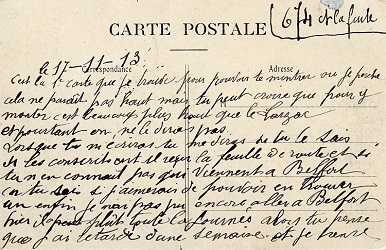 674 et la suite
CARTE POSTALE
Correspondance
Adresse
le 17-11-13
c'est la 1e carte que je trouve pour pouvoir te montrer ou je perche
cela ne parait pas haut mais tu peut croire que pour y
monter c'est beaucoup plus haut que le Larzac
et pourtant on ne le dirais pas
Lorsque tu m'ecriras tu me diras si tu le sais
si les conscrits ont reçu la feuille de route et si
tu n'en connait pas qui viennent a Belfort
car tu sais si j'aimerais de pouvoir en trouver
un enfin je n'ais pas pu encore aller a Belfort
hier il a plut toute la journée alors tu pense
que j'ai retardé d'une semaine et je pense